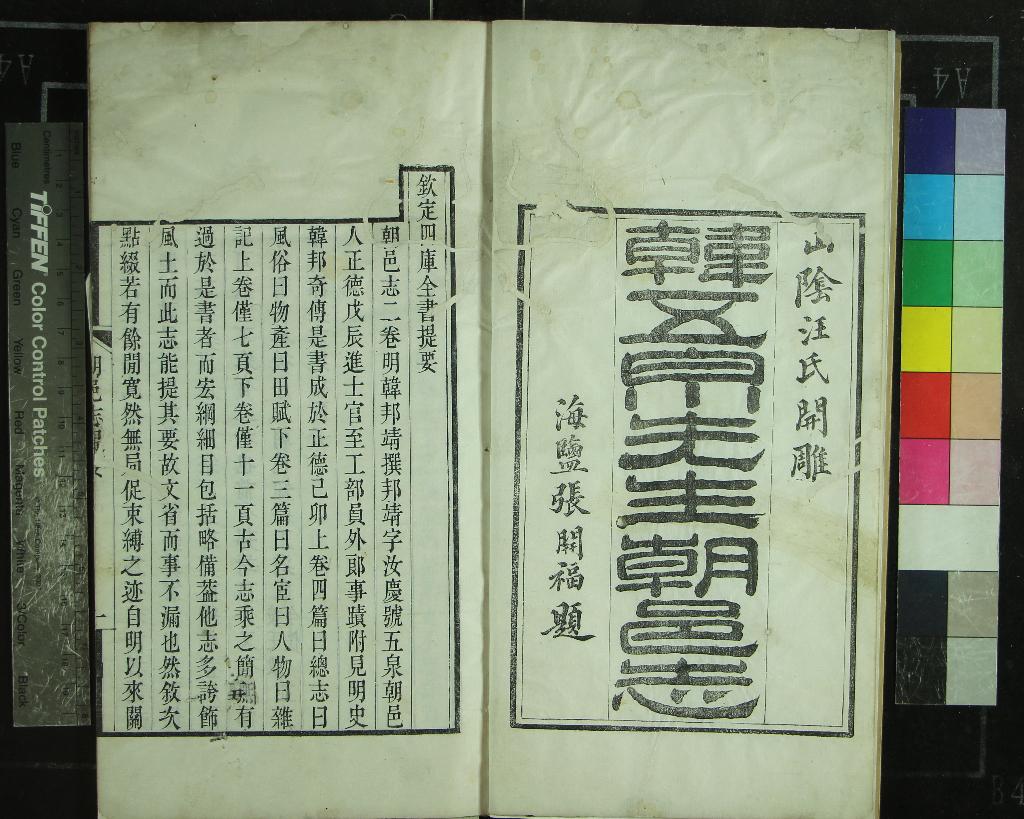 山陰汪氏開雕
韓五泉先生朝邑志
海鹽張開福題
欽定四庫全書提要
朝邑志二卷明韓邦靖撰邦靖字汝慶號五泉朝邑
人正德戊辰進士官至工部員外郎事蹟附見明史
韓邦奇傳是書成於正德己卯上卷四篇曰總志曰
風俗曰物產曰田賦下卷三篇曰名宦曰人物曰雜
記上卷僅七頁下卷僅十一頁古今志乘之簡無有
過於是書者而宏綱細目包括略備葢他志多誇飾
風土而此志能提其要故文省而事不漏也然敘次
點綴若有餘閒寬然無局促束縛之迹自明以來關
TIFFEN Color Control Patches
Centimetres
Blue
Cyan
Green
Yellow
Red
Magenta
White
3/Color
Black
A4
A4
B4